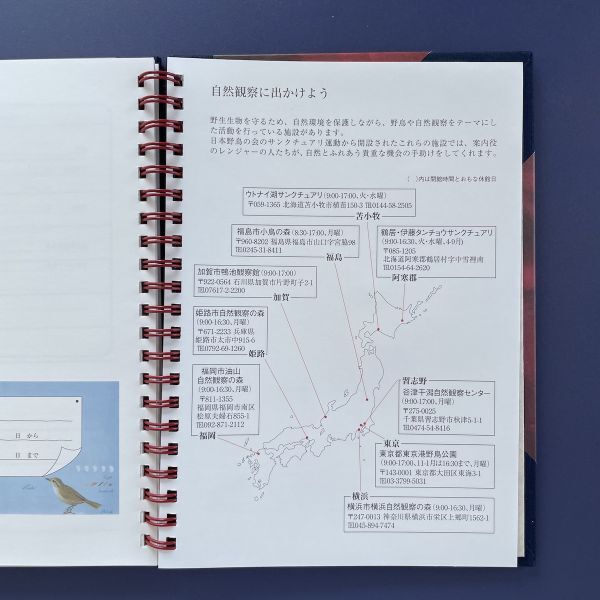 自然観察に出かけよう
野生生物を守るため、自然環境を保護しながら、野鳥や自然観察をテーマにし
た活動を行っている施設があります。
日本野鳥の会のサンクチュアリ運動から開設されたこれらの施設では、案内役
のレンジャーの人たちが、自然とふれあう貴重な機会の手助けをしてくれます。
( )内は開館時間とおもな休館日
ウトナイ湖サンクチュアリ(9:00-17:00、火・水曜)
〒059-1365 北海道苫小牧市植苗150-3 ℡0144-58-2505
苫小牧
福島市小鳥の森(8:30-17:00、月曜)
〒960-8202 福島県福島市山口字宮脇98
℡0245-31-8411
福島
鶴居・伊藤タンチョウサンクチュアリ
(9:00-16:30、火・水曜、4-9月)
〒085-1205
北海道阿寒郡鶴居村字中雪裡南
℡0154-64-2620
阿寒郡
加賀市鴨池観察館(9:00-17:00)
〒922-0564 石川県加賀市片野町子2-1
℡07617-2-2200
加賀
姫路市自然観察の森
(9:00-16:30、月曜)
〒671-2233 兵庫県
姫路市太市中915-6
℡0792-69-1260
姫路
福岡市油山
自然観察の森
(9:00-16:30、月曜)
〒811-1355
福岡県福岡市南区
桧原夫婦石855-1
℡092-871-2112
福岡
習志野
谷津干潟自然観察センター
(9:00-17:00、月曜)
〒275-0025
千葉県習志野市秋津5-1-1
℡0474-54-8416
東京
東京都東京港野鳥公園
(9:00-17:00、11-1月は16:30まで、月曜)
〒143-0001 東京都大田区東海3-1
℡03-3799-5031
横浜
横浜市横浜自然観察の森(9:00-16:30、月曜)
〒247-0013 神奈川県横浜市栄区上郷町1562-1
℡045-894-7474
日 から
日 まで